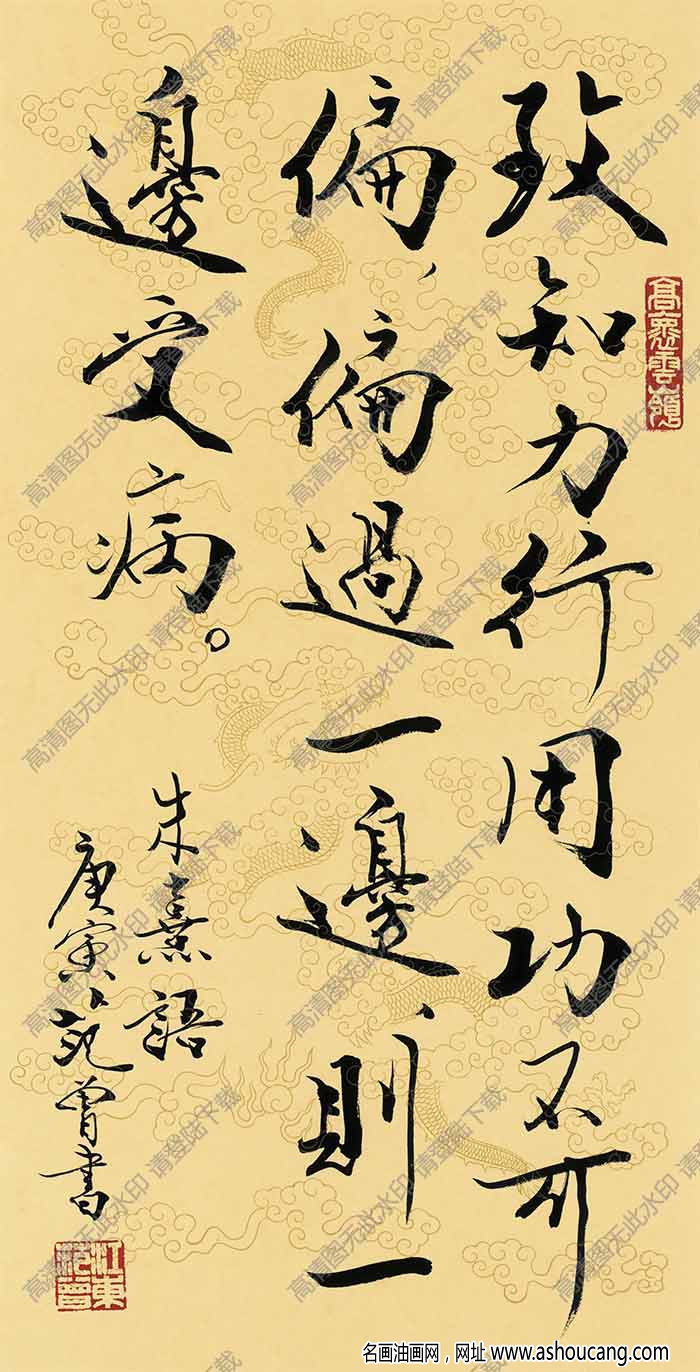 致知力行用功不可
偏、偏過一邊、則一
邊受病。
朱熹語
庚寅、范曾書
江東范曾
高清图无此水印 请登陆下载
名画油画网，网址 www.ashoucang.com